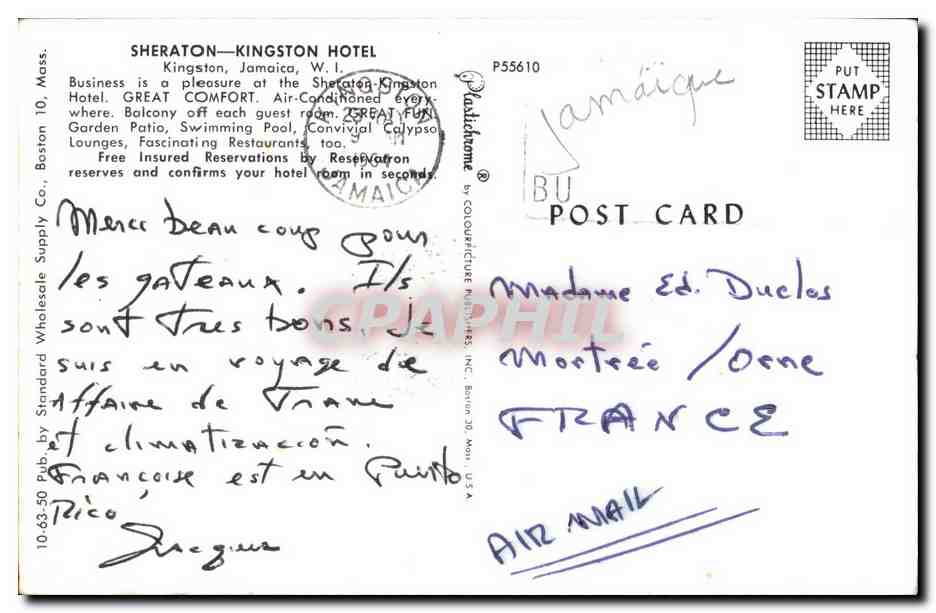 SHERATON—KINGSTON HOTEL
Kingston, Jamaica, W. I.
Business is a pleasure at the Sheraton-Kingston
Hotel. GREAT COMFORT. Air-Conditioned every-
where. Balcony off each guest room. GREAT FUN.
Garden Patio, Swimming Pool, Convivial Calypso
Lounges, Fascinating Restaurants, too.
Free Insured Reservations by Reservatron
reserves and confirms your hotel room in seconds.
KINGSTON
1964
JAMAICA
Merci beau coup pour
les gateaux. Ils
sont tres bons. Je
suis en voyage de
Affaire de Trane
et climatización.
Francoise est en Puerto
Rico
Jacques
10-63-50 Pub. by Standard Wholesale Supply Co., Boston 10, Mass.
Plastichrome ® by COLOURPICTURE PUBLISHERS, INC., Boston 30, Mass., U.S.A
P55610
Jamaïque
BU
PUT
STAMP
HERE
POST CARD
Madame Ed. Duclos
Mortrée / Orne
FRANCE
AIR MAIL
CPAPHIL